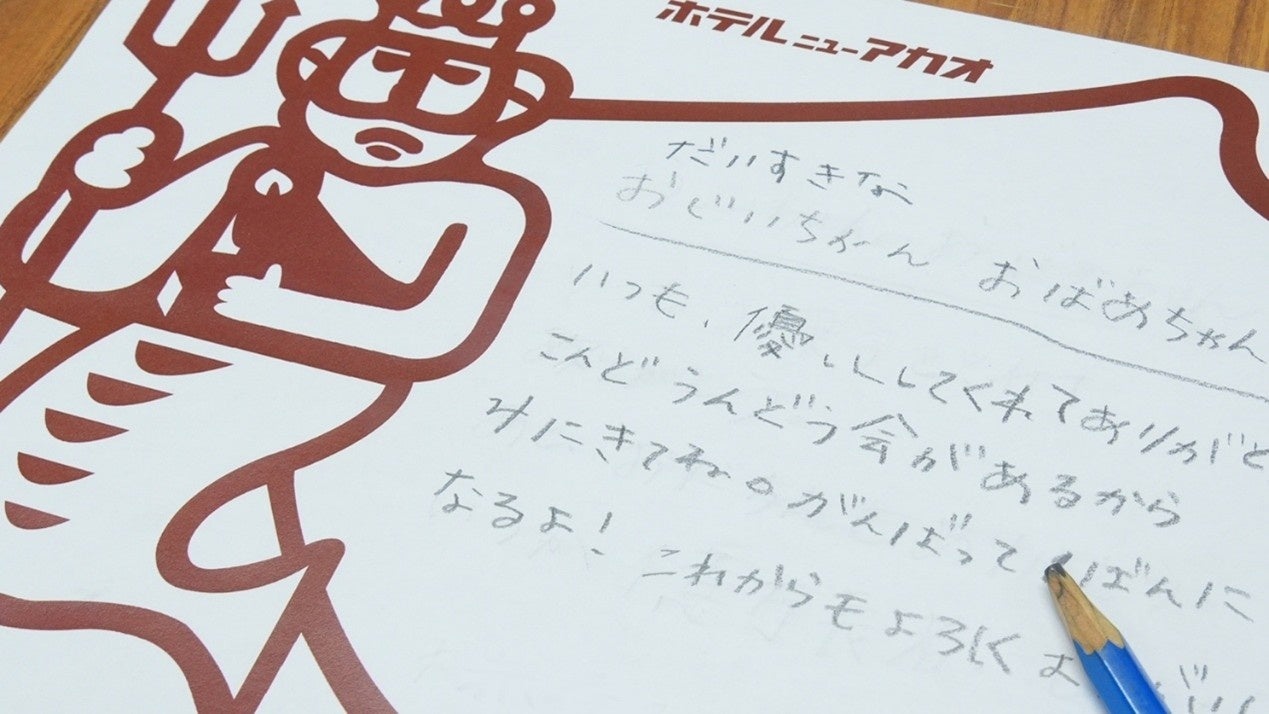 ホテルニューアカオ
だいすきな
おじいちゃん おばあちゃん
いつも、優しくしてくれてありがと
こんどうんどう会があるから
みにきてね。がんばって いちばんに
なるよ! これからもよろしく